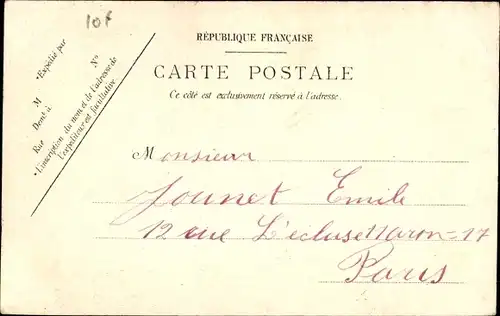 10F
RÉPUBLIQUE FRANÇAISE
CARTE POSTALE
Ce côté est exclusivement réservé à l'adresse.
*Expédié par
M
Demt à
Rue Nº
* L'inscription du nom et de l'adresse de
l'expéditeur est facultative.
Monsieur
Jounet Emile
12 rue L'écluse 17
Paris